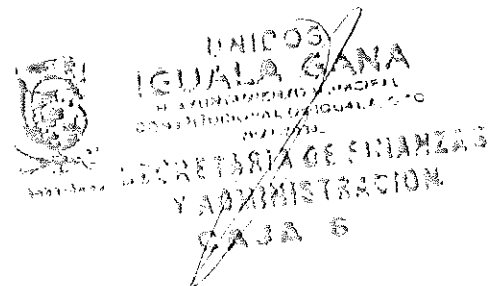 UNIDOS
IGUALA GANA
H. AYUNTAMIENTO MUNICIPAL
CONSTITUCIONAL DE IGUALA, GRO
SECRETARIA DE FINANZAS
Y ADMINISTRACION
CAJA 6